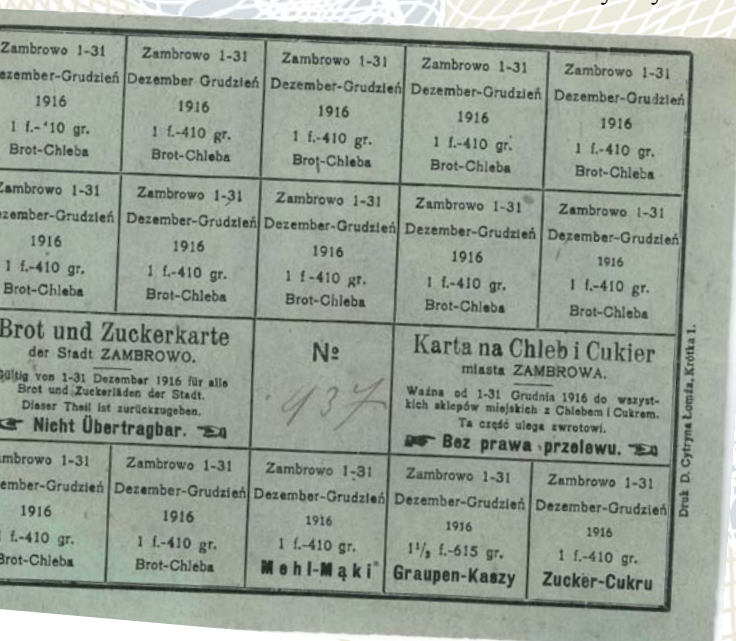 Zambrowo 1-31
ezember-Grudzień
1916
1 f.-410 gr.
Brot-Chleba
Zambrowo 1-31
Dezember Grudzień
1916
1 f.-410 gr.
Brot-Chleba
Zambrowo 1-31
Dezember-Grudzień
1916
1 f.-410 gr.
Brot-Chleba
Zambrowo 1-31
Dezember-Grudzień
1916
1 f.-410 gr.
Brot-Chleba
Zambrowo 1-31
Dezember-Grudzień
1916
1 f.-410 gr.
Brot-Chleba
Zambrowo 1-31
zember-Grudzień
1916
1 f.-410 gr.
Brot-Chleba
Zambrowo 1-31
Dezember-Grudzień
1916
1 f.-410 gr.
Brot-Chleba
Zambrowo 1-31
Dezember-Grudzień
1916
1 f-410 gr.
Brot-Chleba
Zambrowo 1-31
Dezember-Grudzień
1916
1 f.-410 gr.
Brot-Chleba
Zambrowo 1-31
Dezember-Grudzień
1916
1 f.-410 gr.
Brot-Chleba
Brot und Zuckerkarte
der Stadt ZAMBROWO.
Gültig von 1-31 Dezember 1916 für alle
Brot und Zuckerläden der Stadt.
Dieser Theil ist zurückzugeben.
Nicht Übertragbar.
№
937
Karta na Chleb i Cukier
miasta ZAMBROWA.
Ważna od 1-31 Grudnia 1916 do wszyst-
kich sklepów miejskich z Chlebem i Cukrem.
Ta część ulega zwrotowi.
Bez prawa przelewu.
mbrowo 1-31
ember-Grudzień
1916
f.-410 gr.
Brot-Chleba
Zambrowo 1-31
Dezember-Grudzień
1916
1 f.-410 gr.
Brot-Chleba
Zambrowo 1-31
Dezember-Grudzień
1916
1 f.-410 gr.
Mehl-Mąki
Zambrowo 1-31
Dezember-Grudzień
1916
1½ f.-615 gr.
Graupen-Kaszy
Zambrowo 1-31
Dezember-Grudzień
1916
1 f.-410 gr.
Zucker-Cukru
Druk D. Cytryna Łomża, Krótka 1.